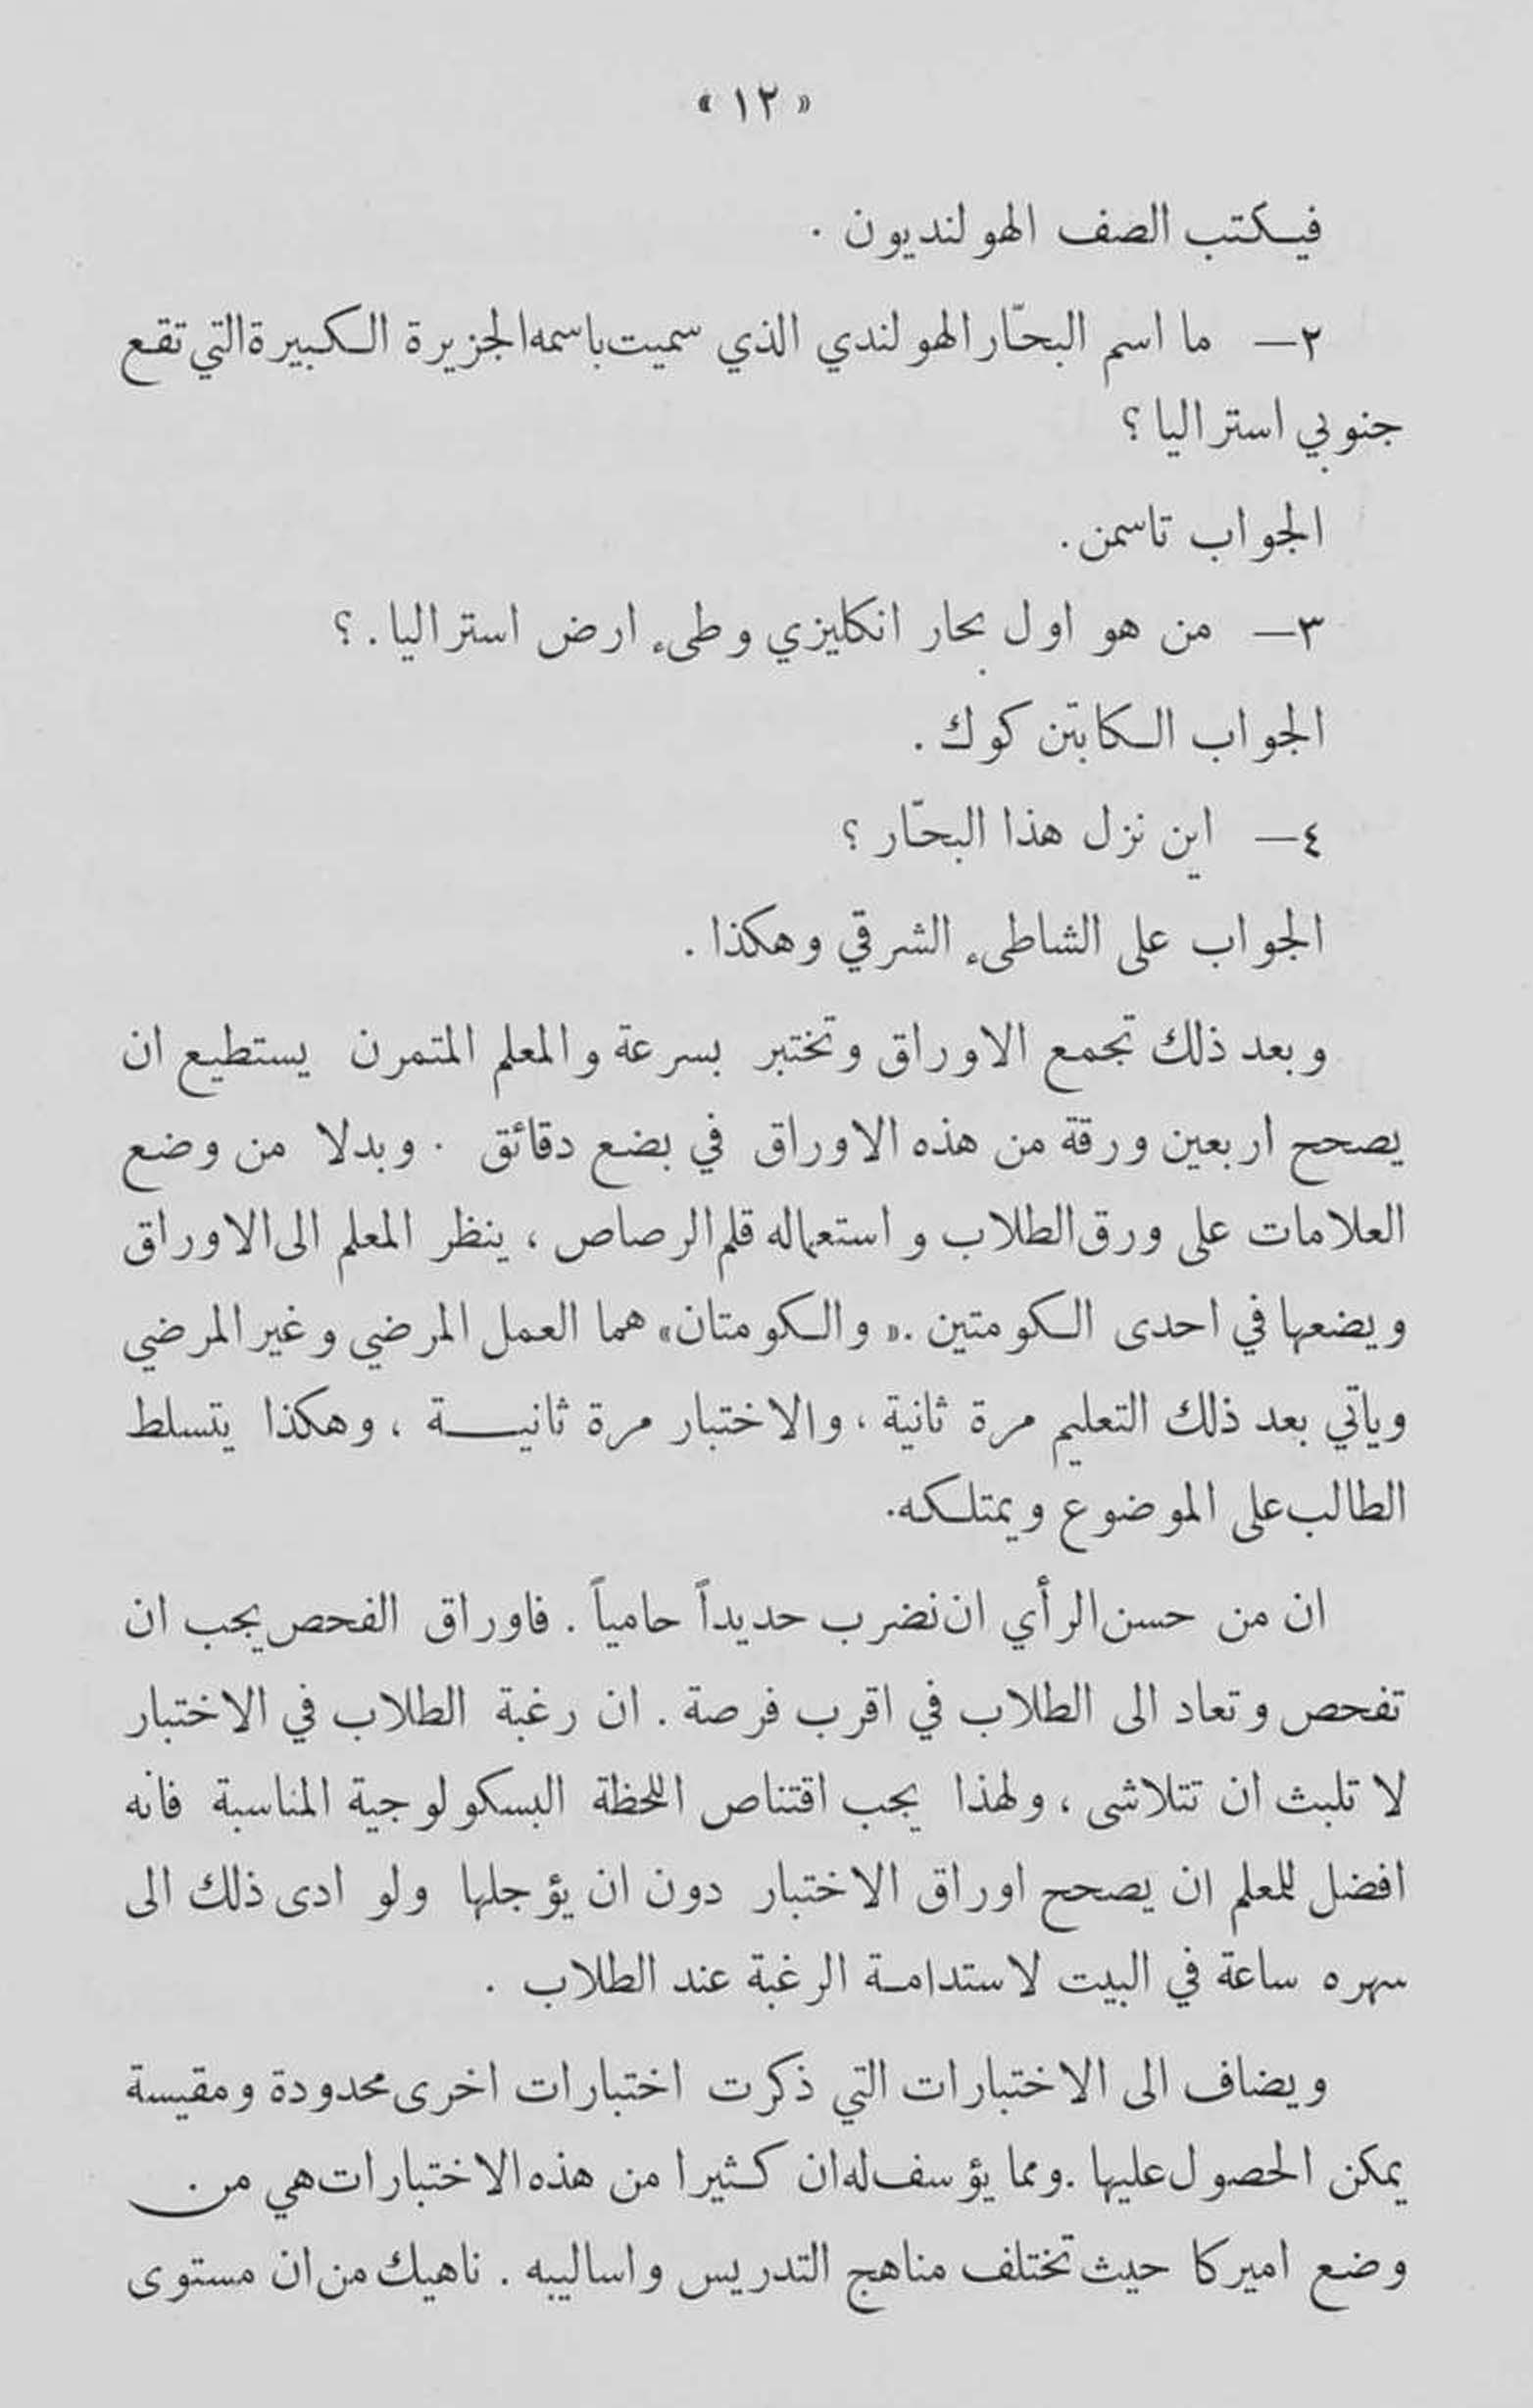 « ١٢ »
فيكتب الصف الهولنديون .
٢— ما اسم البحّار الهولندي الذي سميت باسمه الجزيرة الكبيرة التي تقع
جنوبي استراليا ؟
الجواب تاسمن .
٣— من هو اول بحار انكليزي وطىء ارض استراليا . ؟
الجواب الكابتن كوك .
٤— اين نزل هذا البحّار ؟
الجواب على الشاطىء الشرقي وهكذا .
وبعد ذلك تجمع الاوراق وتختبر بسرعة والمعلم المتمرن يستطيع ان
يصحح اربعين ورقة من هذه الاوراق في بضع دقائق . وبدلا من وضع
العلامات على ورق الطلاب واستعماله قلم الرصاص ، ينظر المعلم الى الاوراق
ويضعها في احدى الكومتين . « والكومتان » هما العمل المرضي وغير المرضي
وياتي بعد ذلك التعليم مرة ثانية ، والاختبار مرة ثانيـــة ، وهكذا يتسلط
الطالب على الموضوع ويمتلكه .
ان من حسن الرأي ان نضرب حديداً حامياً . فاوراق الفحص يجب ان
تفحص وتعاد الى الطلاب في اقرب فرصة . ان رغبة الطلاب في الاختبار
لا تلبث ان تتلاشى ، ولهذا يجب اقتناص اللحظة البسكولوجية المناسبة فانه
افضل للمعلم ان يصحح اوراق الاختبار دون ان يؤجلها ولو ادى ذلك الى
سهره ساعة في البيت لاستدامة الرغبة عند الطلاب .
ويضاف الى الاختبارات التي ذكرت اختبارات اخرى محدودة ومقيسة
يمكن الحصول عليها . ومما يؤسف له ان كثيرا من هذه الاختبارات هي من
وضع اميركا حيث تختلف مناهج التدريس واساليبه . ناهيك من ان مستوى